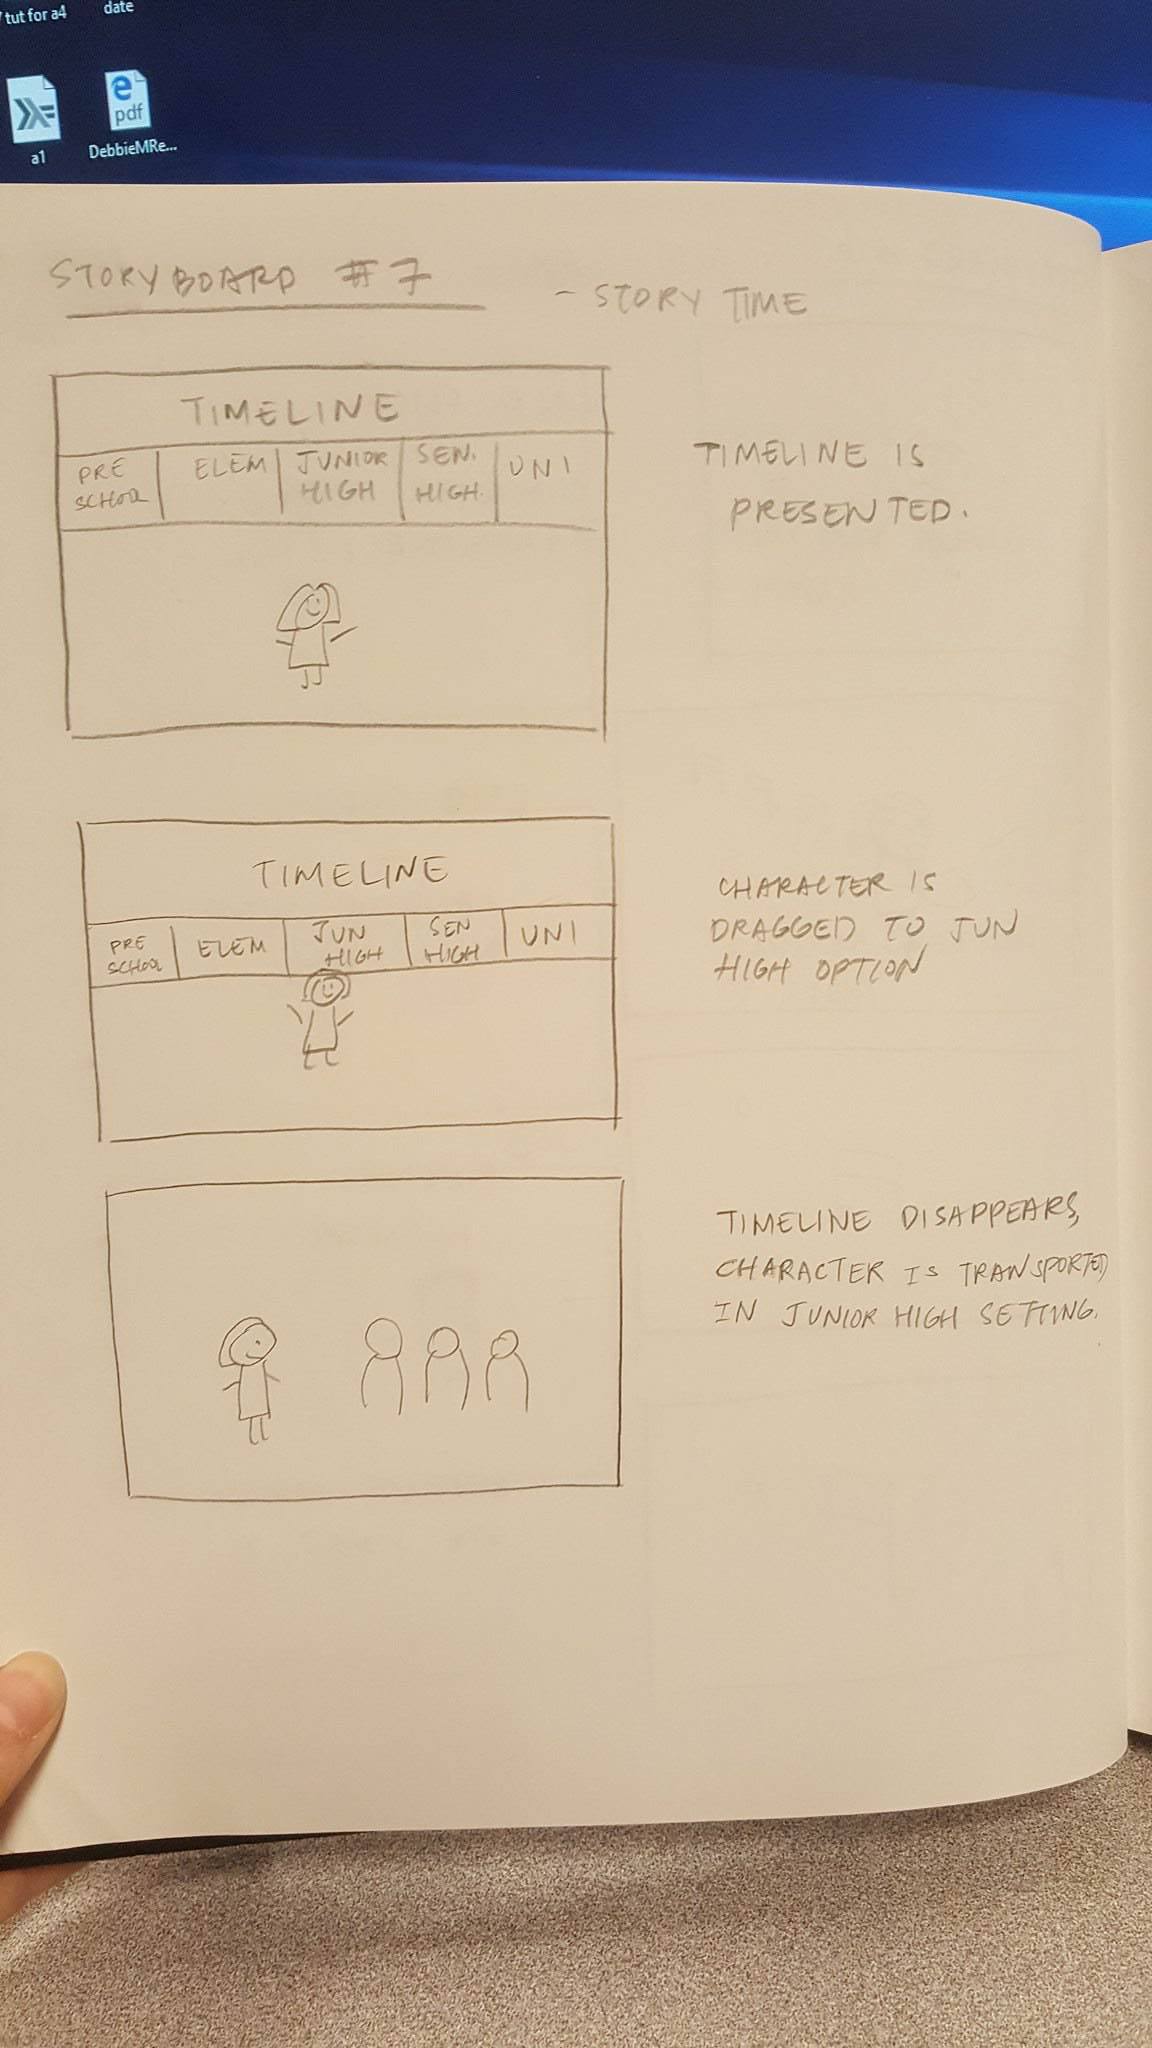 tut for a4
date
a1
pdf
DebbieMRe...
STORYBOARD #7
- STORY TIME
TIMELINE
PRE SCHOOL
ELEM
JUNIOR HIGH
SEN. HIGH.
UNI
TIMELINE IS
PRESENTED.
TIMELINE
PRE SCHOOL
ELEM
JUN HIGH
SEN HIGH
UNI
CHARACTER IS
DRAGGED TO JUN
HIGH OPTION
TIMELINE DISAPPEARS,
CHARACTER IS TRANSPORTED
IN JUNIOR HIGH SETTING.